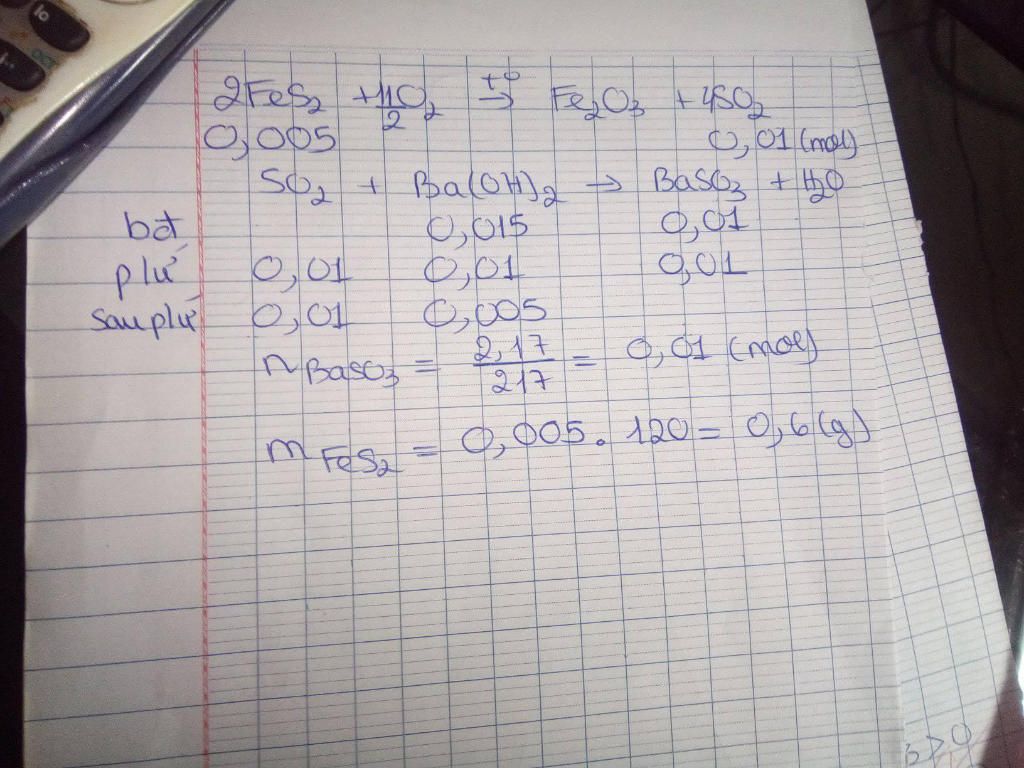 2FeS₂ + 11/2 O₂ t°→ Fe₂O₃ + 4SO₂
0,005 0,01 (mol)
SO₂ + Ba(OH)₂ → BaSO₃ + H₂O
bđ 0,015 0,01
pứ 0,01 0,01 0,01
sau pứ 0,01 0,005
nBaSO₃ = 2,17/217 = 0,01 (mol)
mFeS₂ = 0,005 . 120 = 0,6 (g)